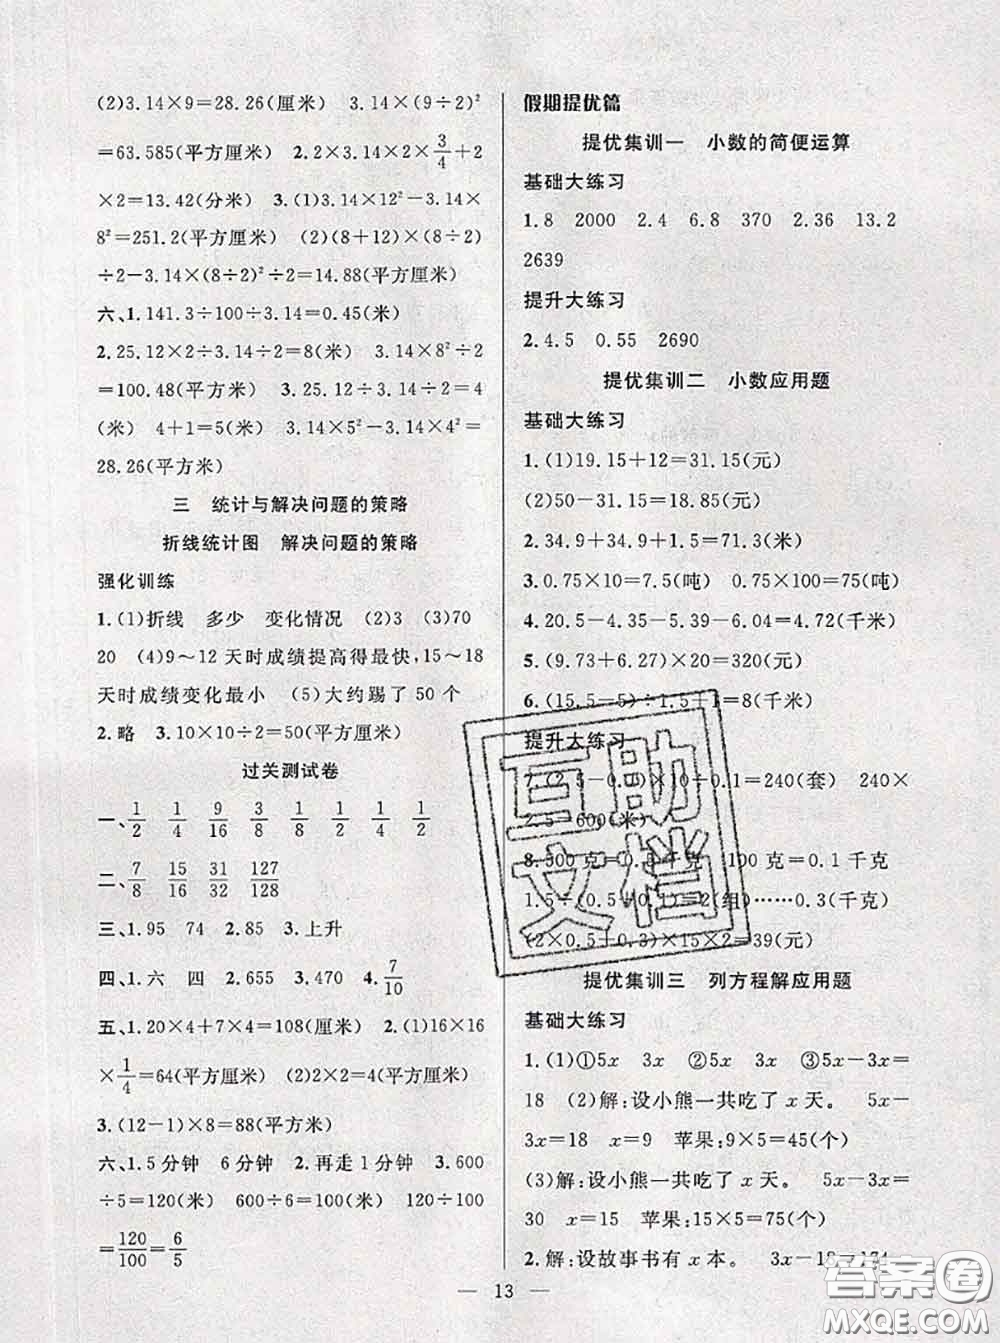 (2)3.14×9=28.26(厘米)　3.14×(9÷2)²
=63.585(平方厘米)　2.2×3.14×2×3/4+2
×2=13.42(分米)　3.(1)3.14×12²-3.14×
8²=251.2(平方厘米)　(2)(8+12)×(8÷2)
÷2-3.14×(8÷2)²÷2=14.88(平方厘米)
六、1.141.3÷100÷3.14=0.45(米)
2.25.12×2÷3.14÷2=8(米)　3.14×8²÷2
=100.48(平方米)　3.25.12÷3.14÷2=4
(米)　4+1=5(米)　3.14×5²-3.14×4²=
28.26(平方米)
三　统计与解决问题的策略
折线统计图　解决问题的策略
强化训练
1.(1)折线　多少　变化情况　(2)3　(3)70
20　(4)9～12天时成绩提高得最快,15～18
天时成绩变化最小　(5)大约踢了50个
2.略　3.10×10÷2=50(平方厘米)
过关测试卷
一、1/2　1/4　9/16　3/8　1/8　1/4　1/2
二、7/8　15/16　31/32　127/128
三、1.95　74　2.85　3.上升
四、1.六　四　2.655　3.470　4.7/10
五、1.20×4+7×4=108(厘米)　2.(1)16×16
×1/4=64(平方厘米)　(2)2×2=4(平方厘米)
3.(12-1)×8=88(平方厘米)
六、1.5分钟　6分钟　2.再走1分钟　3.600
÷5=120(米)　600÷6=100(米)　120÷100
=120/100=6/5
假期提优篇
提优集训一　小数的简便运算
基础大练习
1.8　2000　2.4　6.8　370　2.36　13.2
2639
提升大练习
2.4.5　0.55　2690
提优集训二　小数应用题
基础大练习
1.(1)19.15+12=31.15(元)
(2)50-31.15=18.85(元)
2.34.9+34.9+1.5=71.3(米)
3.0.75×10=7.5(吨)　0.75×100=75(吨)
4.20.5-4.35-5.39-6.04=4.72(千米)
5.(9.73+6.27)×20=320(元)
6.(15.5-5)÷1.5+1=8(千米)
提升大练习
7.(2.5-0.)×10÷0.1=240(套)　240×
2.5=600(米)
8.500克=0.5千克　100克=0.1千克
1.5÷(0.5+0.1)=2(组)……0.3(千克)
(2×0.5+0.3)×15×2=39(元)
提优集训三　列方程解应用题
基础大练习
1.(1)①5x　3x　②5x　3x　③5x-3x=
18　(2)解:设小熊一共吃了x天。　5x-
3x=18　x=9　苹果:9×5=45(个)
(3)解:设小熊一共吃了x天。　5x-3x=
30　x=15　苹果:15×5=75(个)
2.解:设故事书有x本。　3x-18=174
互助
文档
答案圈
MXQE.COM
— 13 —